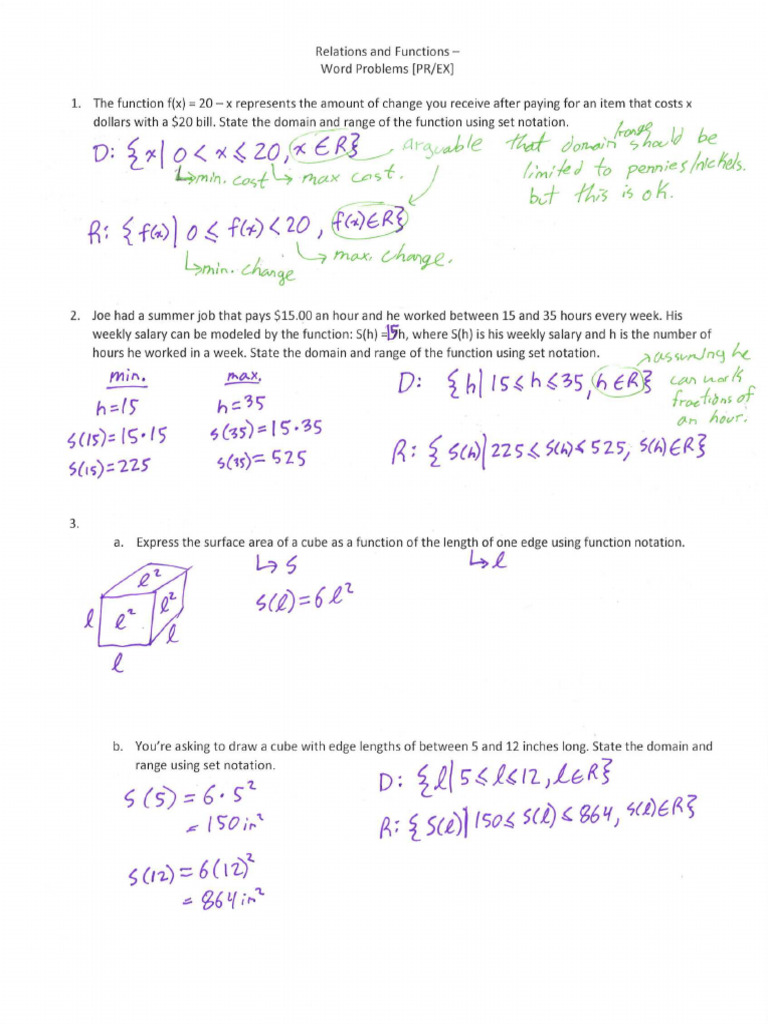 Relations and Functions –
Word Problems [PR/EX]
1. The function f(x) = 20 – x represents the amount of change you receive after paying for an item that costs x
dollars with a $20 bill. State the domain and range of the function using set notation.
D: {x| 0 < x ≤ 20, x ∈ R} arguable that domain/range should be
↳ min. cost ↳ max cost. limited to pennies/nickels.
but this is ok.
R: {f(x)| 0 ≤ f(x) < 20, f(x) ∈ R}
↳ min. change ↳ max. change.
2. Joe had a summer job that pays $15.00 an hour and he worked between 15 and 35 hours every week. His
weekly salary can be modeled by the function: S(h) = 15h, where S(h) is his weekly salary and h is the number of
hours he worked in a week. State the domain and range of the function using set notation.
min. max. D: {h| 15 ≤ h ≤ 35, h ∈ R} → assuming he
can work
fractions of
an hour.
h = 15 h = 35
S(15) = 15·15 S(35) = 15·35
S(15) = 225 S(35) = 525
R: {S(h)| 225 ≤ S(h) ≤ 525, S(h) ∈ R}
3.
a. Express the surface area of a cube as a function of the length of one edge using function notation.
↳ S ↳ l
l² l² l²
l l l
S(l) = 6l²
b. You're asking to draw a cube with edge lengths of between 5 and 12 inches long. State the domain and
range using set notation.
S(5) = 6·5²
= 150 in²
S(12) = 6(12)²
= 864 in²
D: {l| 5 ≤ l ≤ 12, l ∈ R}
R: {S(l)| 150 ≤ S(l) ≤ 864, S(l) ∈ R}